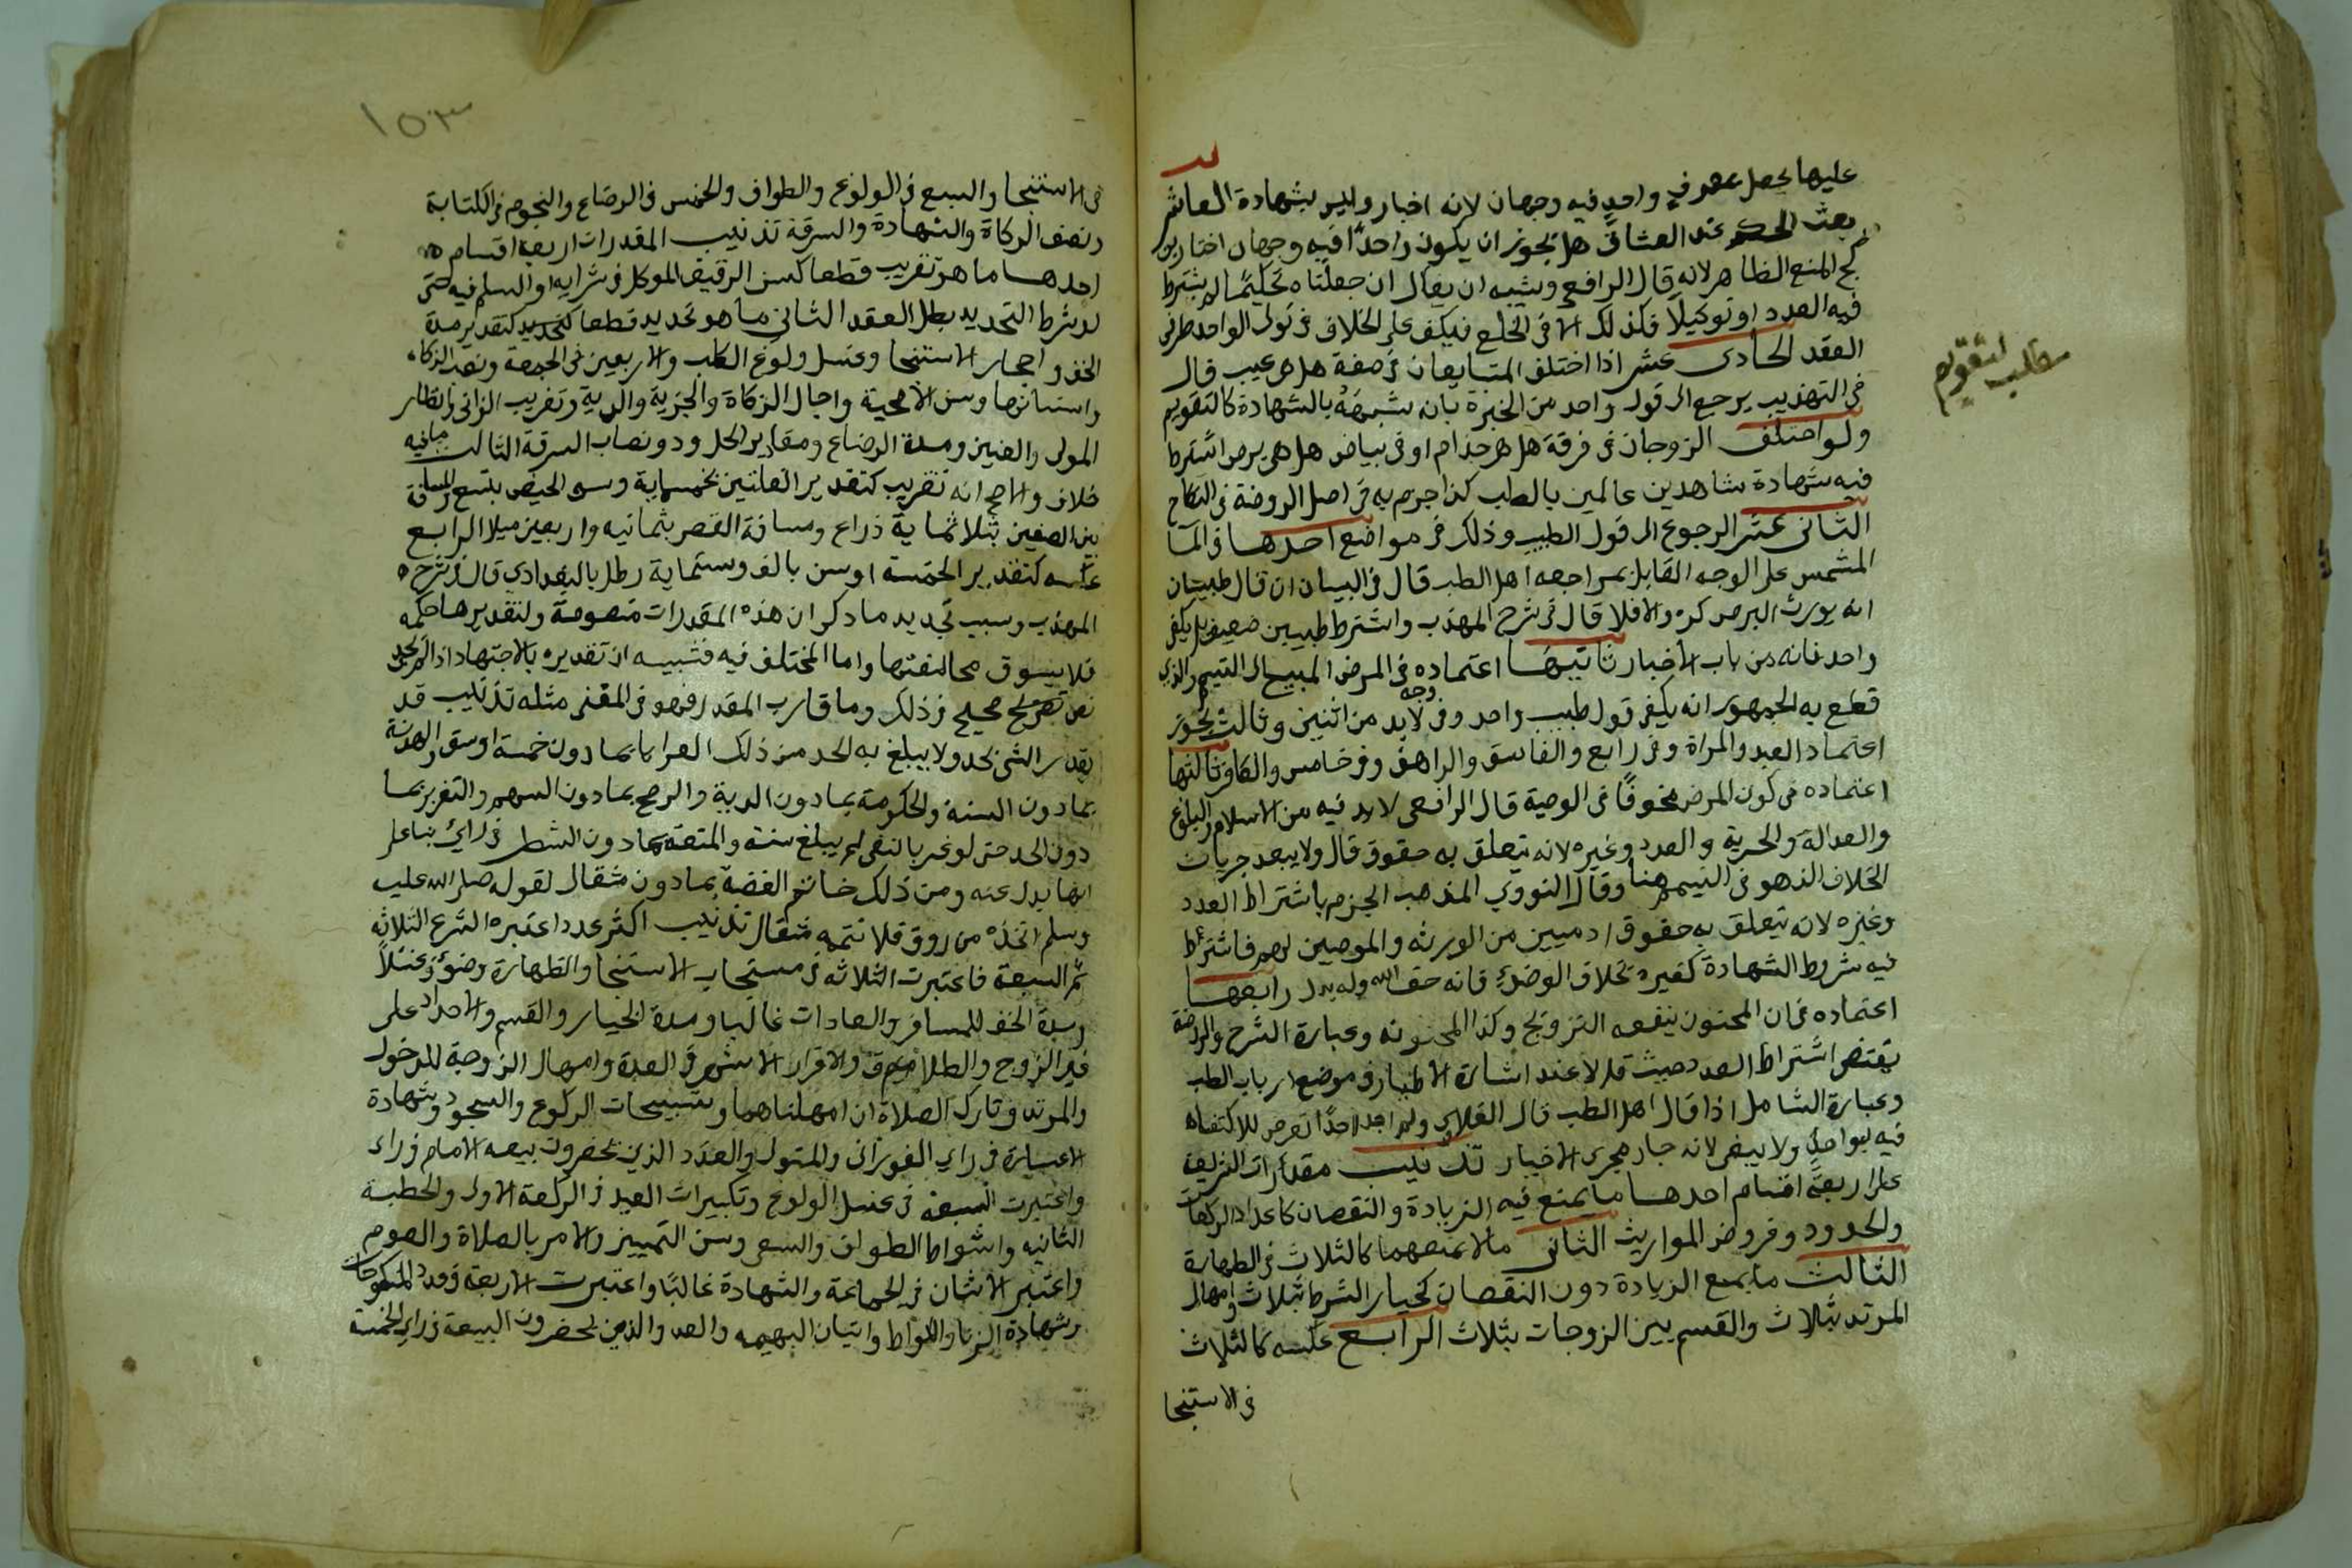 عليها يحمل عمروفي واحد فيه وجهان لانه اخبار وليس بشهادة العاشر
بعث الحكم عند الشقاق هل يجوز ان يكون واحدًا فيه وجهان اختار بن
كج المنع لظاهر الاية قال الرافعي ويشبه ان يقال ان جعلناه تحكيمًا لم يشترط
فيه العدد او توكيلًا فكذلك الا في الخلع فيكف على الخلاف في تولى الواحد طرفى
العقد الحادى عشر اذا اختلف المتبايعان في صفة هل هي عيب قال
في التهذيب يرجع الى قول واحد من الخبرة بانه شبهه بالشهادة كالتقويم
مطلب لتقويم
ولو اختلف الزوجان في فرقة هل هو جذام او في بياض هل هي برص اشترط
فيه شهادة شاهدين عالمين بالطب كذا جزم به في اصل الروضة في النكاح
الثانى عشر الرجوع الى قول الطبيب وذلك في مواضع احدها في الما
المشمس على الوجه القايل بمراجعه اهل الطب قال في البيان ان قال طبيبان
انه يورث البرص كره والا فلا قال في شرح المهذب واشترط طبيبين ضعيف بل يكفى
واحد فانه من باب الاخبار ثانيها اعتماده في المرض المبيح الى التيمم والذي
قطع به الجمهور انه يكفي قول طبيب واحد وفي وجه لابد من اثنين وثالث يجوز
اعتماد العبد والمراة وفي رابع والفاسق والمراهق وفي خامس والكافر ثالثها
اعتماده في كون المرض مخوفًا في الوصية قال الرافعى لابد فيه من الاسلام والبلوغ
والعدالة والحرية والعدد وغيره لانه يتعلق به حقوق قال ولا يبعد جريان
الخلاف الذهو في التيمم هنا وقال النووي المذهب الجزم باشتراط العدد
وغيره لانه يتعلق به حقوق ادميين من الورثه والموصيين لهم فاشترط
فيه شروط الشهادة كغيره بخلاف الوضوء فانه حق الله وله بدل رابعها
اعتماده في ان المجنون ينفعه التزويج وكذا المجنونه وعبارة الشرح والروضة
يقتضى اشتراط العدد حيث قال لا عند اشارة الاطبا وفي موضع ارباب الطب
وعبارة الشامل اذا قال اهل الطب قال العلاى ولم اجد احدًا تعرض للاكتفاه
فيه بواحد ولا يبعد لانه جار مجرى الاخبار تذنيب مقدرات الشريعة
على اربعة اقسام احدها ما يمنع فيه الزيادة والنقصان كاعداد الركعات
والحدود وفروض المواريث الثانى مالا يمنعهما كالثلاث في الطهارة
الثالث ما يمنع الزيادة دون النقصان كخيار الشرط بثلاث وامهال
المرتد بثلاث والقسم بين الزوجات بثلاث الرابع عكسه كالثلاث
في الاستنجا
١٥٣
في الاستنجا والسبع في الولوغ والطواف والخمس في الرضاع والنجوم في الكتابة
ونصف الزكاة والشهادة والسرقة تذنيب المقدرات اربعة اقسام
احدها ما هو تقريب قطعا كسن الرقيق الموكل في شرايه او السلم فيه حتى
لو شرط التحديد بطل العقد الثانى ما هو تحديد قطعا كتحديد كتقدير مدة
الخف واحجار الاستنجا وغسل ولوغ الكلب والاربعين في الجمعة ونصب الزكاه
واسنانها وسن الاضحية واجال الزكاة والجزية والدية وتغريب الزانى وانظار
المولى والعنين ومدة الرضاع ومقادير الحدود ونصاب السرقة الثالث ما فيه
خلاف والاصح انه تقريب كتقدير القلتين بخمسماية وسن الحيض بتسع والمسافة
بين الصفين بثلاثماية ذراع ومسافة القصر بثمانيه واربعين ميلا الرابع
عكسه كتقدير الخمسة اوسق بالف وستماية رطل بالبغدادي قال في شرح
المهذب وسبب تحديد ما ذكر ان هذه المقدرات منصوصة ولتقديرها حكمه
فلا يسوق مخالفتها واما المختلف فيه فشبيه ان تقديره بالاجتهاد اذ لم يجى
نص تصريح صحيح في ذلك وما قارب المقدر فهو في المعنى مثله تذنيب قد
يقدر الشى بحد ولا يبلغ به الحد من ذلك العرايا بما دون خمسة اوسق والهدنة
بما دون السنة والحكومة بما دون الدية والرضح بما دون السهم والتعزير بما
دون الحد حتى لو غرب بالنفى لم يبلغ سنة والمتعة بما دون الشطر في راي بنا على
انها بدل عنه ومن ذلك خاتم الفضة بما دون مثقال لقوله صلى الله عليه
وسلم اتخذه من روق فلا تتمه مثقال تذنيب اكثر عدد اعتبره الشرع الثلاثه
ثم السبعة فاعتبرت الثلاثه في مستحباب الاستنجا والطهارة وضوء وغسلًا
ومدة الخف للمسافر والعادات غالبا ومدة الخيار والقسم والاحداد على
غير الزوج والطلاق والاقرار الاشهر في العدة وامهال الزوجة للدخول
والمرتد وتارك الصلاة ان امهلناهما وتسبيحات الركوع والسجود وشهادة
الاعسار في راي الفورانى والمتولى والعدد الذين يحضرون بيعه الامام في راى
واعتبرت السبعة في غسل الولوغ وتكبيرات العيد في الركعة الاولى والخطبة
الثانيه واشواط الطواف والسعى وسن التمييز والامر بالصلاة والصوم
واعتبر الاثنان في الجماعة والشهادة غالبًا واعتبرت الاربعة في عدد المنكوحات
وشهادة الزنا واللواط واتيان البهيمه والعدد الذين يحضرون البيعة في راي الخمسة